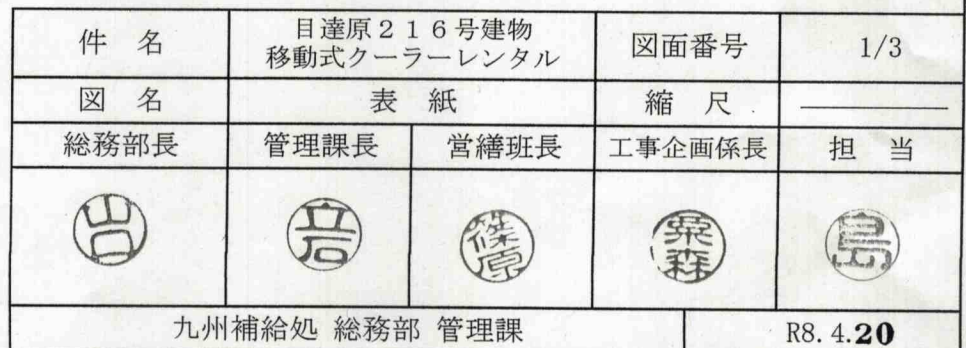 件 名 目達原216号建物 移動式クーラーレンタル 図面番号 1/3
図 名 表 紙 縮 尺
総務部長 管理課長 営繕班長 工事企画係長 担 当
山口 立石 篠原 粟森 島
九州補給処 総務部 管理課 R8.4.20